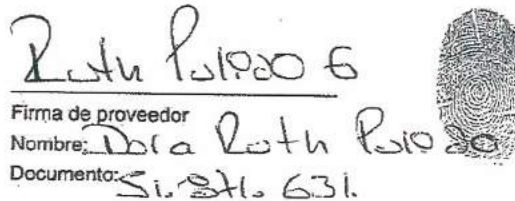 Ruth Pulido G
Firma de proveedor
Nombre: Dora Ruth Pulido
Documento: 631.